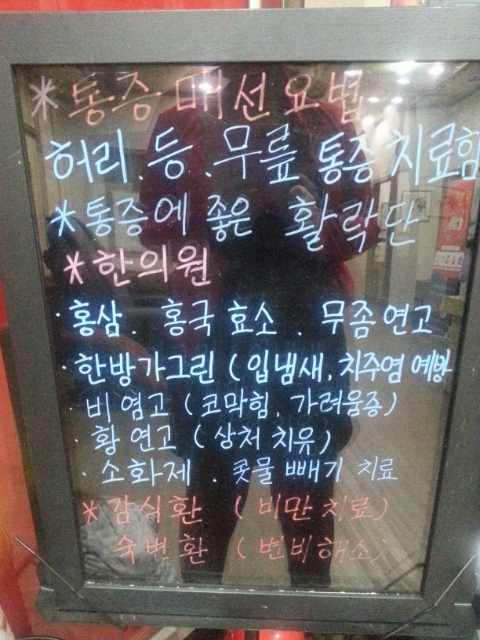 *통증 매선요법
허리.등.무릎 통증 치료함
*통증에 좋은 활락단
*한의원
·홍삼. 홍국효소. 무좀연고
·한방가그린 (입냄새. 치주염 예방
·비염고 (코막힘. 가려움증)
·황연고 (상처 치유)
·소화제. 콧물빼기 치료
*감식환 (비만치료)
숙변환 (변비해소)